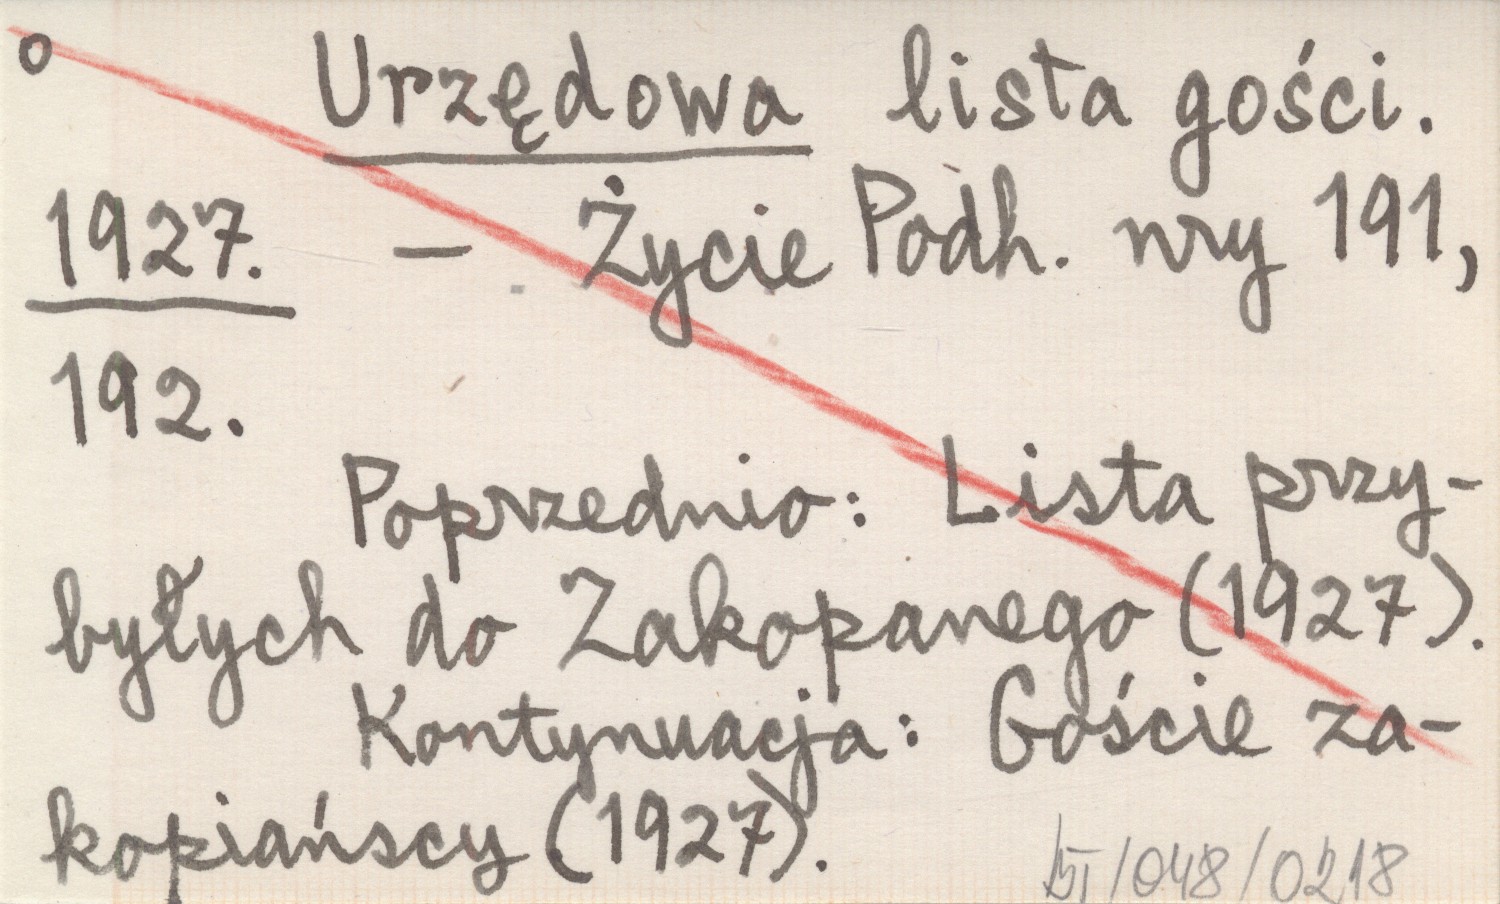 o Urzędowa lista gości.
1927. — Życie Podh. nry 191,
192.
Poprzednio: Lista przy-
byłych do Zakopanego (1927).
Kontynuacja: Goście za-
kopiańscy (1927).
/048/0218